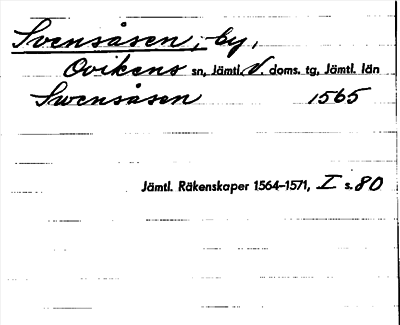 Svensåsen, by,
Ovikens sn, Jämtl. V. doms. tg, Jämtl. län
Swensåsen 1565
Jämtl. Räkenskaper 1564–1571, I s. 80